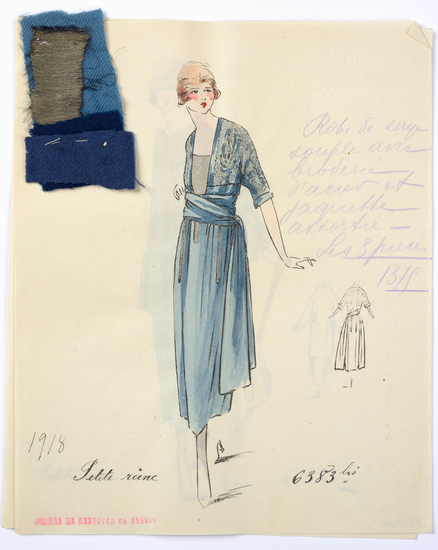 Robe de serge
souple avec
broderie
d'acier et
jaquette
assortie -
Les 3 pièces
1375
1918
Petite reine
6383 bis